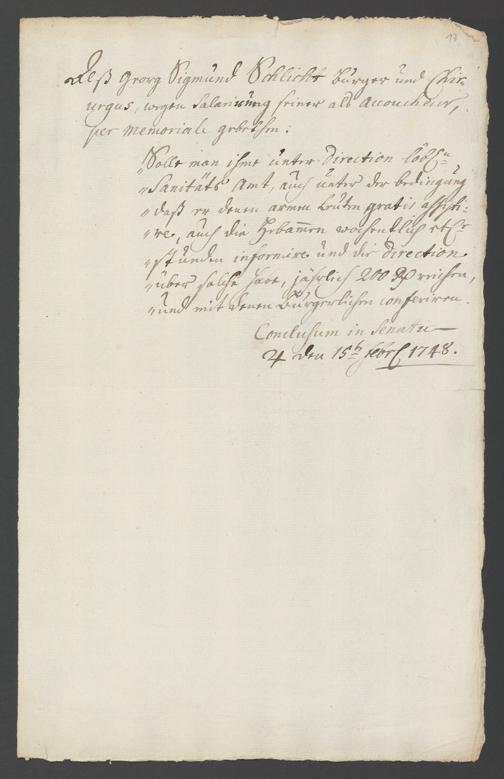 17
Als Georg Sigmund Schlicht burger und Chir,
urgus, wegen Salarirung seiner als Accoucheur,
per memoriale gebethen:
„Solle man ihme unter Direction löbl.
„Sanitäts Amt, auch unter der bedingung
„daß er denen armen Leuten gratis assisti-
„re, auch die Hebammen wochentlich etl.
„stunden informire und die Direction
„über solche habe, jährlich 200 reichen,
„und mit denen Bürgerlichen conferiren.
Conclusum in Senatu
♃ den 15t. febr. 1748.